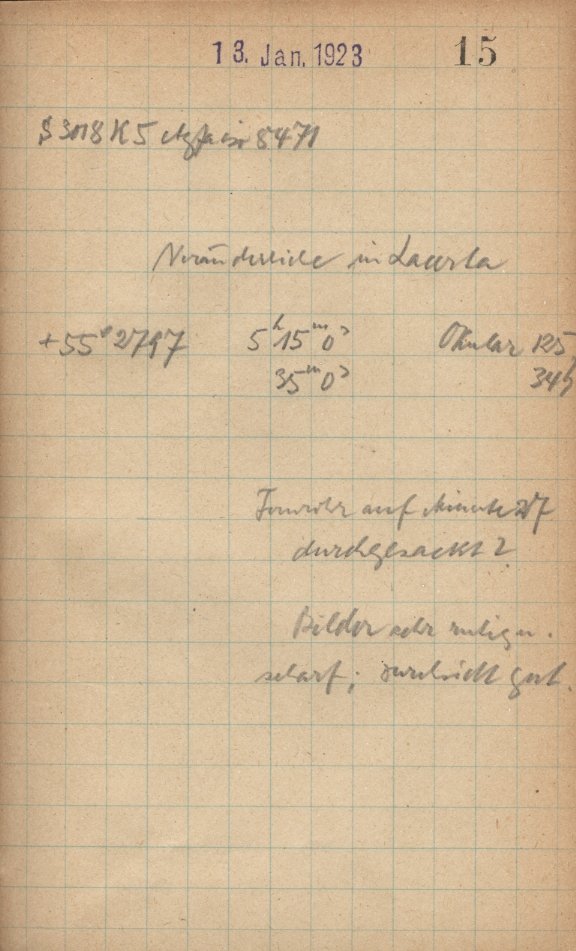 13. Jan. 1923 15
S 3018 K5 8471
Veränderliche in Lacerta
+55° 2797 5h 15m 0s Okular 125
35m 0s 34
Fernrohr auf Minute 27
durchgesackt?
Bilder sehr ruhig u.
scharf; Durchsicht gut.